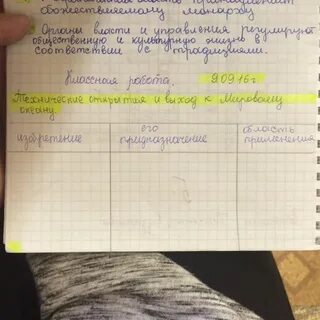 обожествляемому монарху
Органы власти и управления регулируют
общественную и культурную жизнь в
соответствии с традициями.
Классная работа. 20.09.16 г.
Технические открытия и выход к Мировому
океану.
изобретение его предназначение область применения